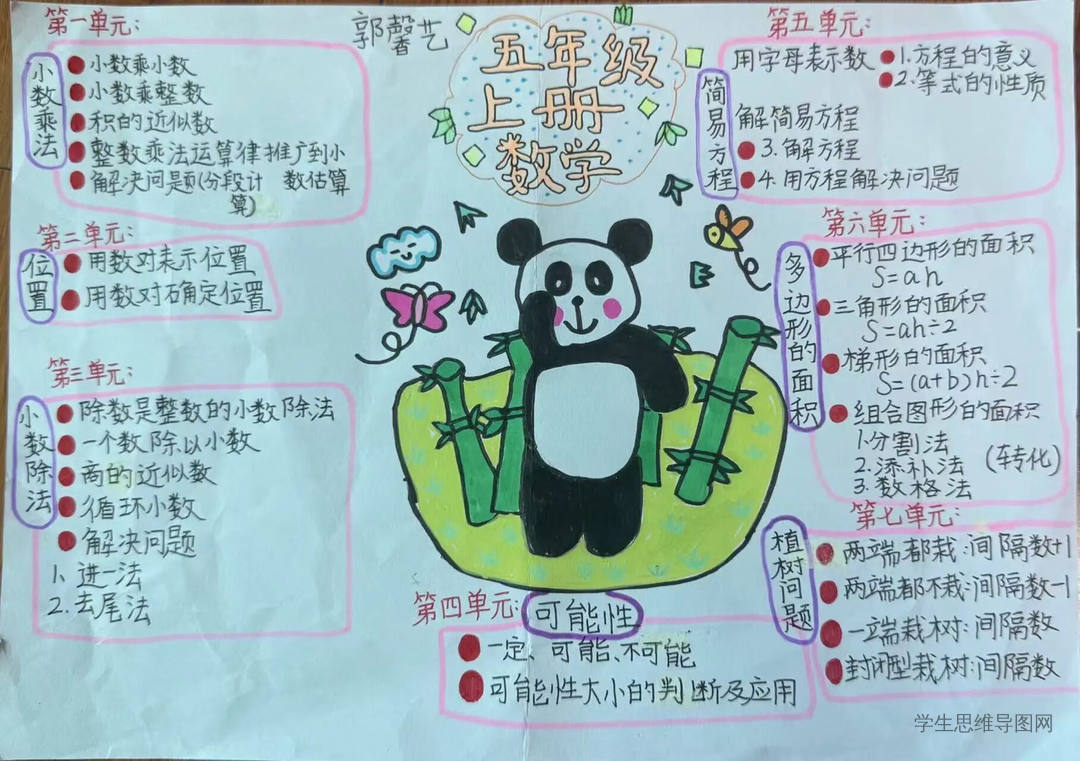 郭馨艺
五年级
上册
数学
第一单元:
小数乘法
小数乘小数
小数乘整数
积的近似数
整数乘法运算律推广到小
解决问题(分段计 数估算
算)
第二单元:
位置
用数对表示位置
用数对确定位置
第三单元:
小数除法
除数是整数的小数除法
一个数除以小数
商的近似数
循环小数
解决问题
1、进一法
2.去尾法
第四单元:
可能性
一定、可能、不可能
可能性大小的判断及应用
第五单元:
简易方程
用字母表示数
1.方程的意义
2.等式的性质
解简易方程
3.解方程
4.用方程解决问题
第六单元:
多边形的面积
平行四边形的面积
S=ah
三角形的面积
S=ah÷2
梯形的面积
S=(a+b)h÷2
组合图形的面积
1.分割法
2.添补法 (转化)
3.数格法
第七单元:
植树问题
两端都栽:间隔数+1
两端都不栽:间隔数-1
一端栽树:间隔数
封闭型栽树:间隔数
学生思维导图网